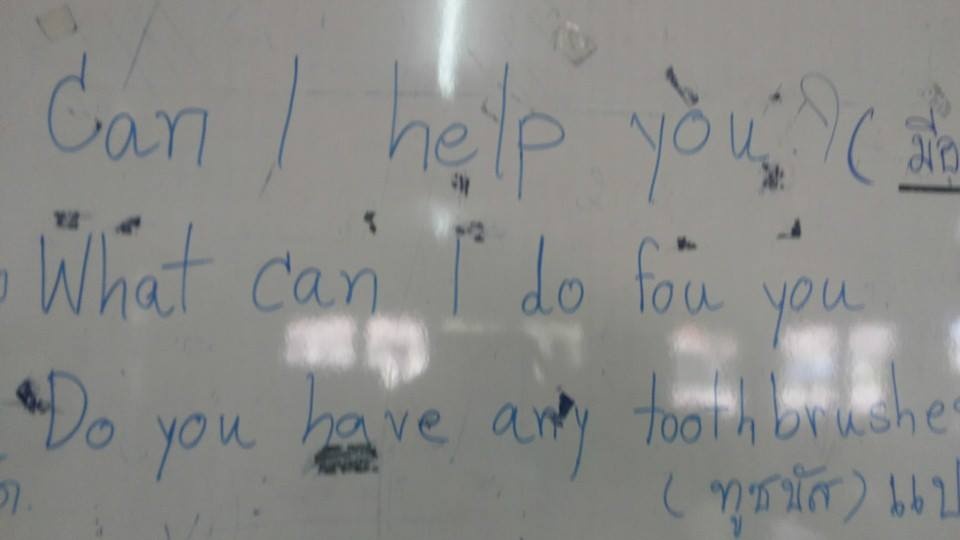 Can I help you? (
What can I do fou you
Do you have any toothbrushe
(ทูธบัส) แป